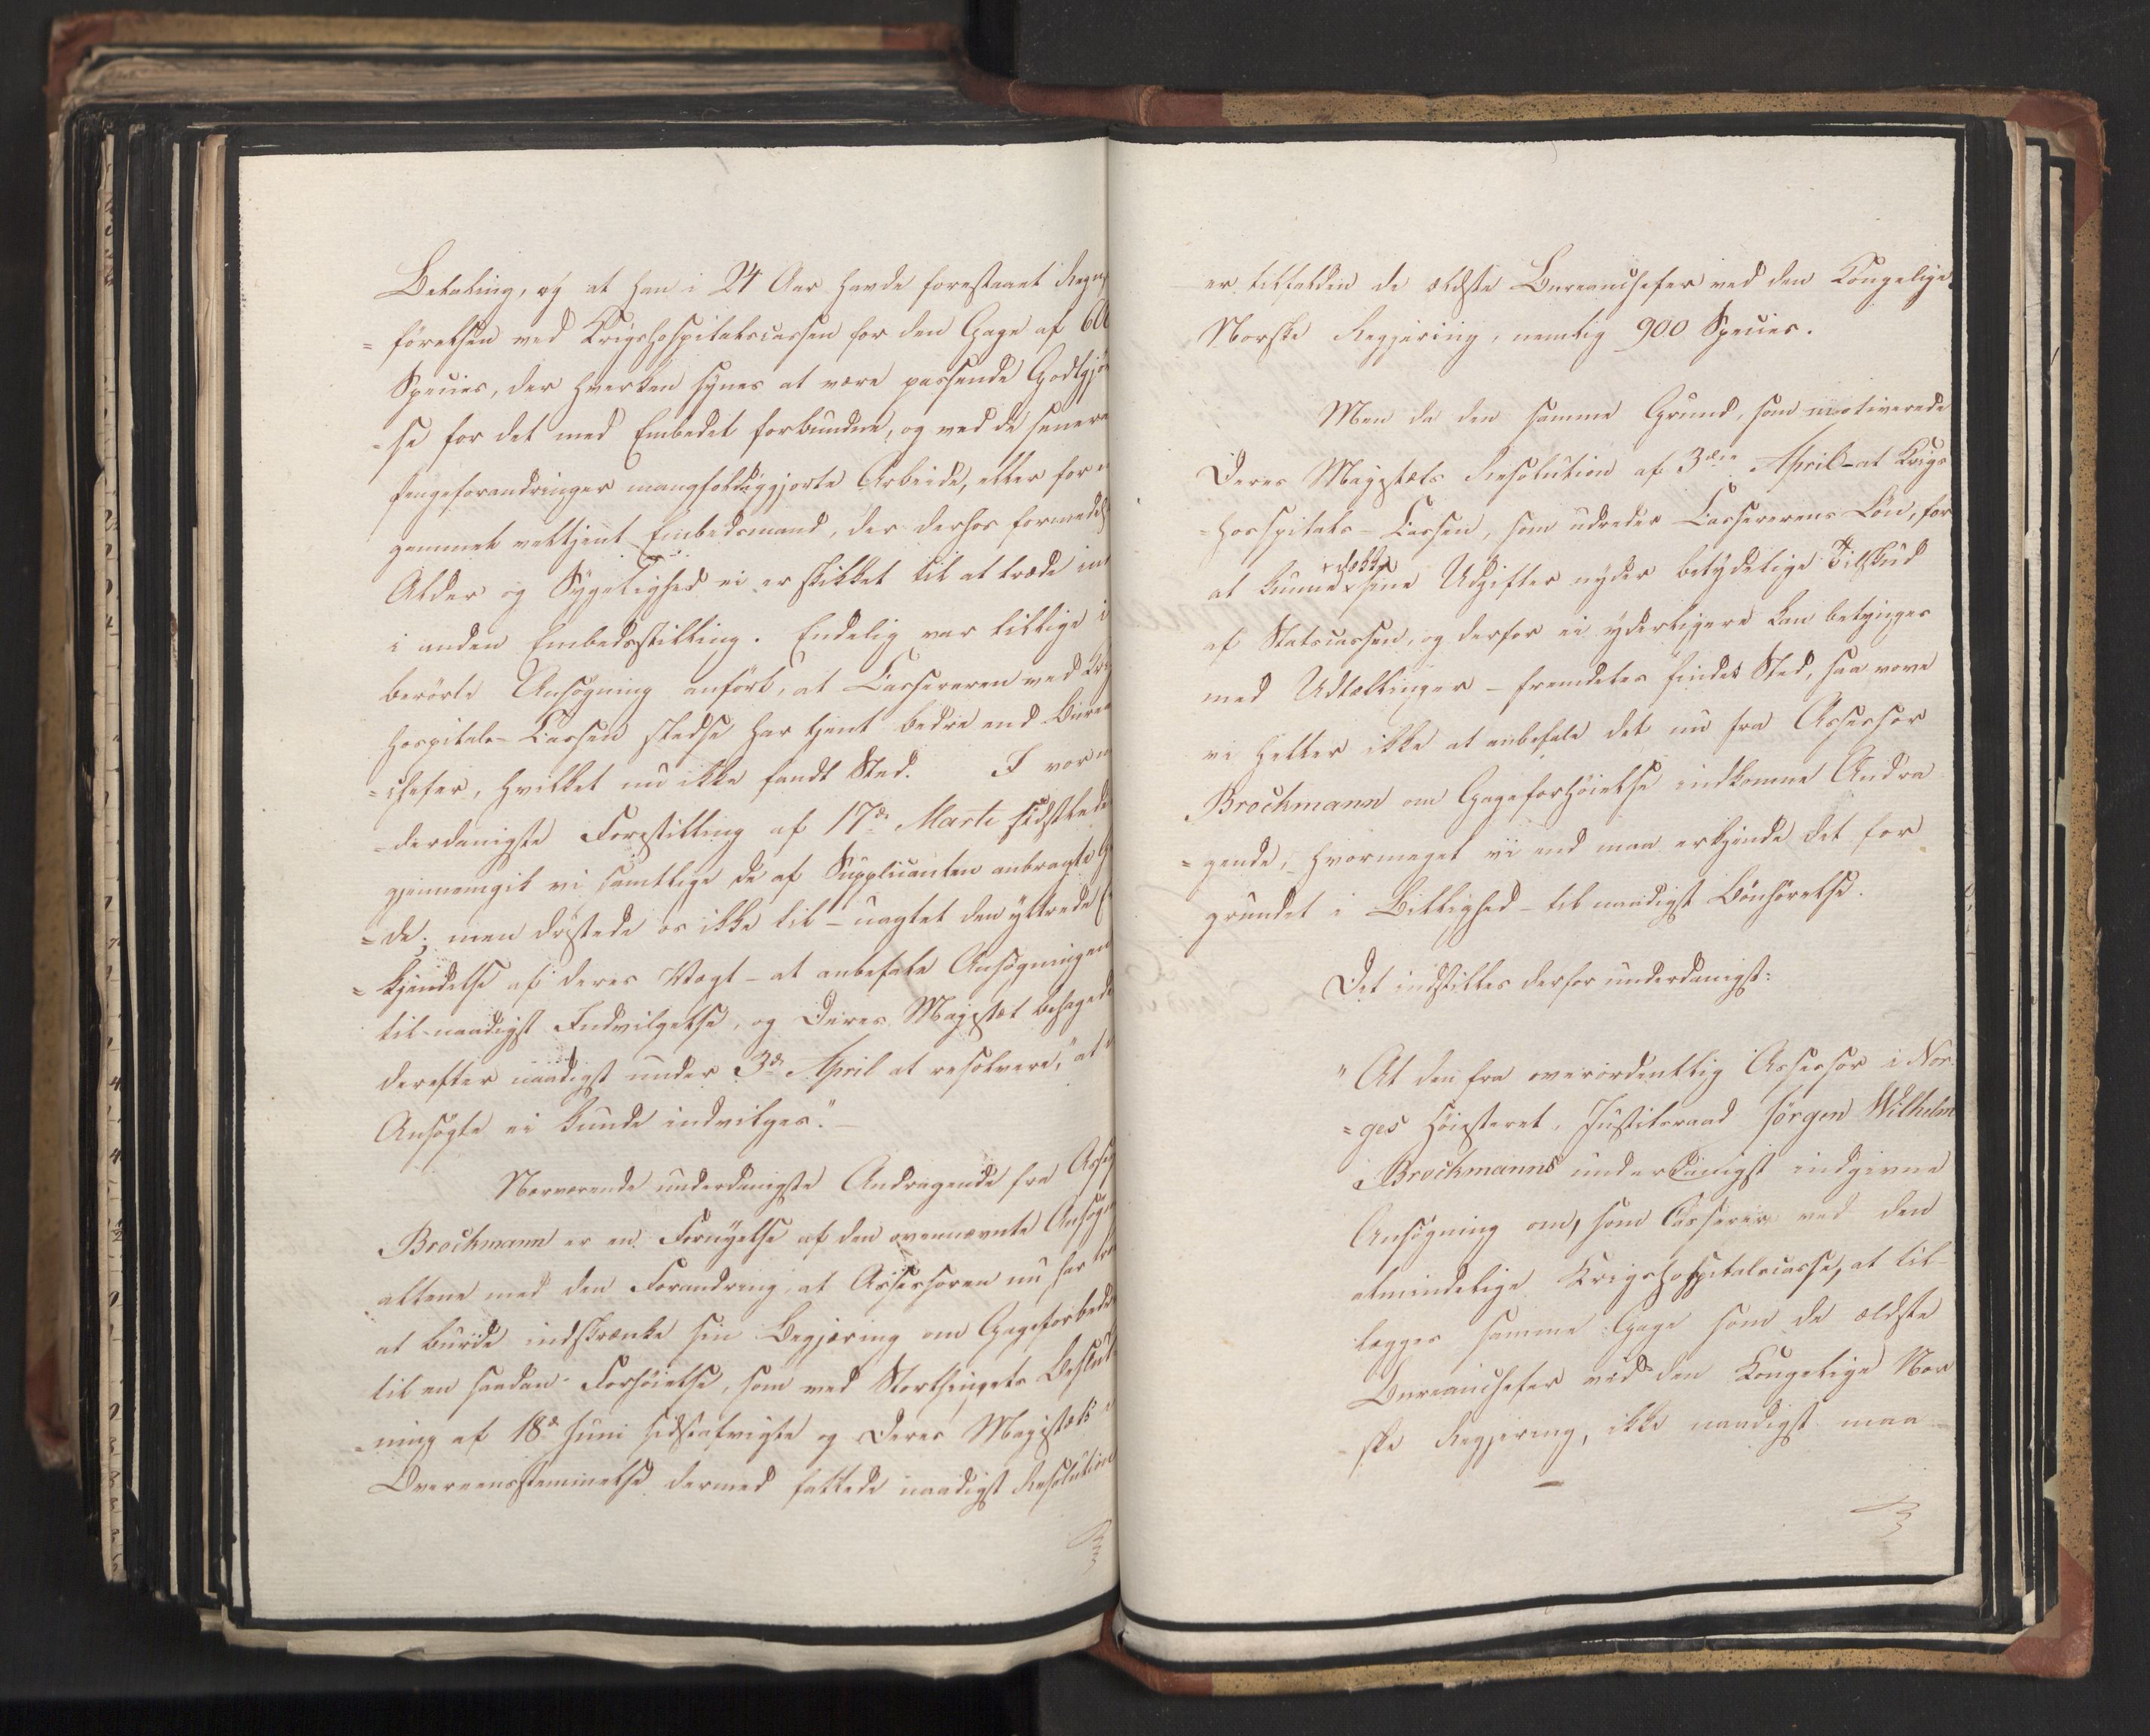 Betaling, og at han i 24 Aar havde forestaaet Regns
= förelsen ved Krigshospitalscassen for den Gage af 600
Species, der hverken synes at være passende Godtgjö
- se for det med Embedet forbundne, og ved de senere
pengeforandringer mangfoldiggjorte Arbeide, eller for en
gammel veltjent Embedsmand, der derhos formedelst
Alder og Sygelighed ei er skikket til at træde ind
i anden Embedsstilling. Endelig var tillige i
berörte Ansögning anfört, at Cassereren ved Krigs
hospitals-Cassen stedse har tjent bedre end Bureau
= chefer, hvilket nu ikke fandt Sted. I vor un
- derdanigste Forestilling af 17de Marti sidstleden
gjennemgik vi samtlige de af Supplicanten anbragte Grun
= de; men dristede os ikke til - uagtet den yttrede Er
= kjendelse af deres Vægt - at anbefale Ansögningen
til naadigst Indvilgelse, og Deres Majestæt behagede
derefter naadigst under 3de April at resolvere, "at det
Ansögte ei kunde indvilges".-
Nærværende underdanigste Andragende fra Assessor
Brochmann er en Fornyelse af den ovennævnte Ansögning
allene med den Forandring, at Assessoren nu har troet
at burde indskrænke sin Begjæring om Gageforbedring
til en saadan Forhöielse, som ved Storthingets Beslut
- ning af 18de Juni sidstafvigte og Deres Majestæts i
Overeensstemmelse dermed fattede naadigst Resolution
er tilfalden de ældste Bureauchefer ved den Kongelige
Norske Regjering, nemlig 900 Species.
Men da den samme Grund, som motiverede
Deres Majestæts Resolution af 3die April - at Krigs
= hosspitals-Cassen, som udreder Cassererens Lön, for
at kunne dække sine Udgifter nyder betydelige Tilskud
af Statscassen, og derfor ei yderligere kan betynges
med Udtællinger - fremdeles finder Sted, saa vove
vi heller ikke at anbefale det nu fra Assessor
Brochmann om Gageforhöielse indkomne Andra
= gende, - hvormeget vi end maa erkjende det for
grundet i Billighed - til naadigst Bönhörelse.
Det indstilles derfor underdanigst:
"At den fra overordentlig Assessor i Nor
= ges Höiesteret, Justitsraad Jörgen Wilhelm
Brochmanns underdanigst indgivne
Ansögning om, som Casserer ved den
almindelige Krigshospitalscasse, at til-
lægges samme Gage som de ældste
Bureauchefer ved den Kongelige Nor
- ske Regjering, ikke naadigst maa